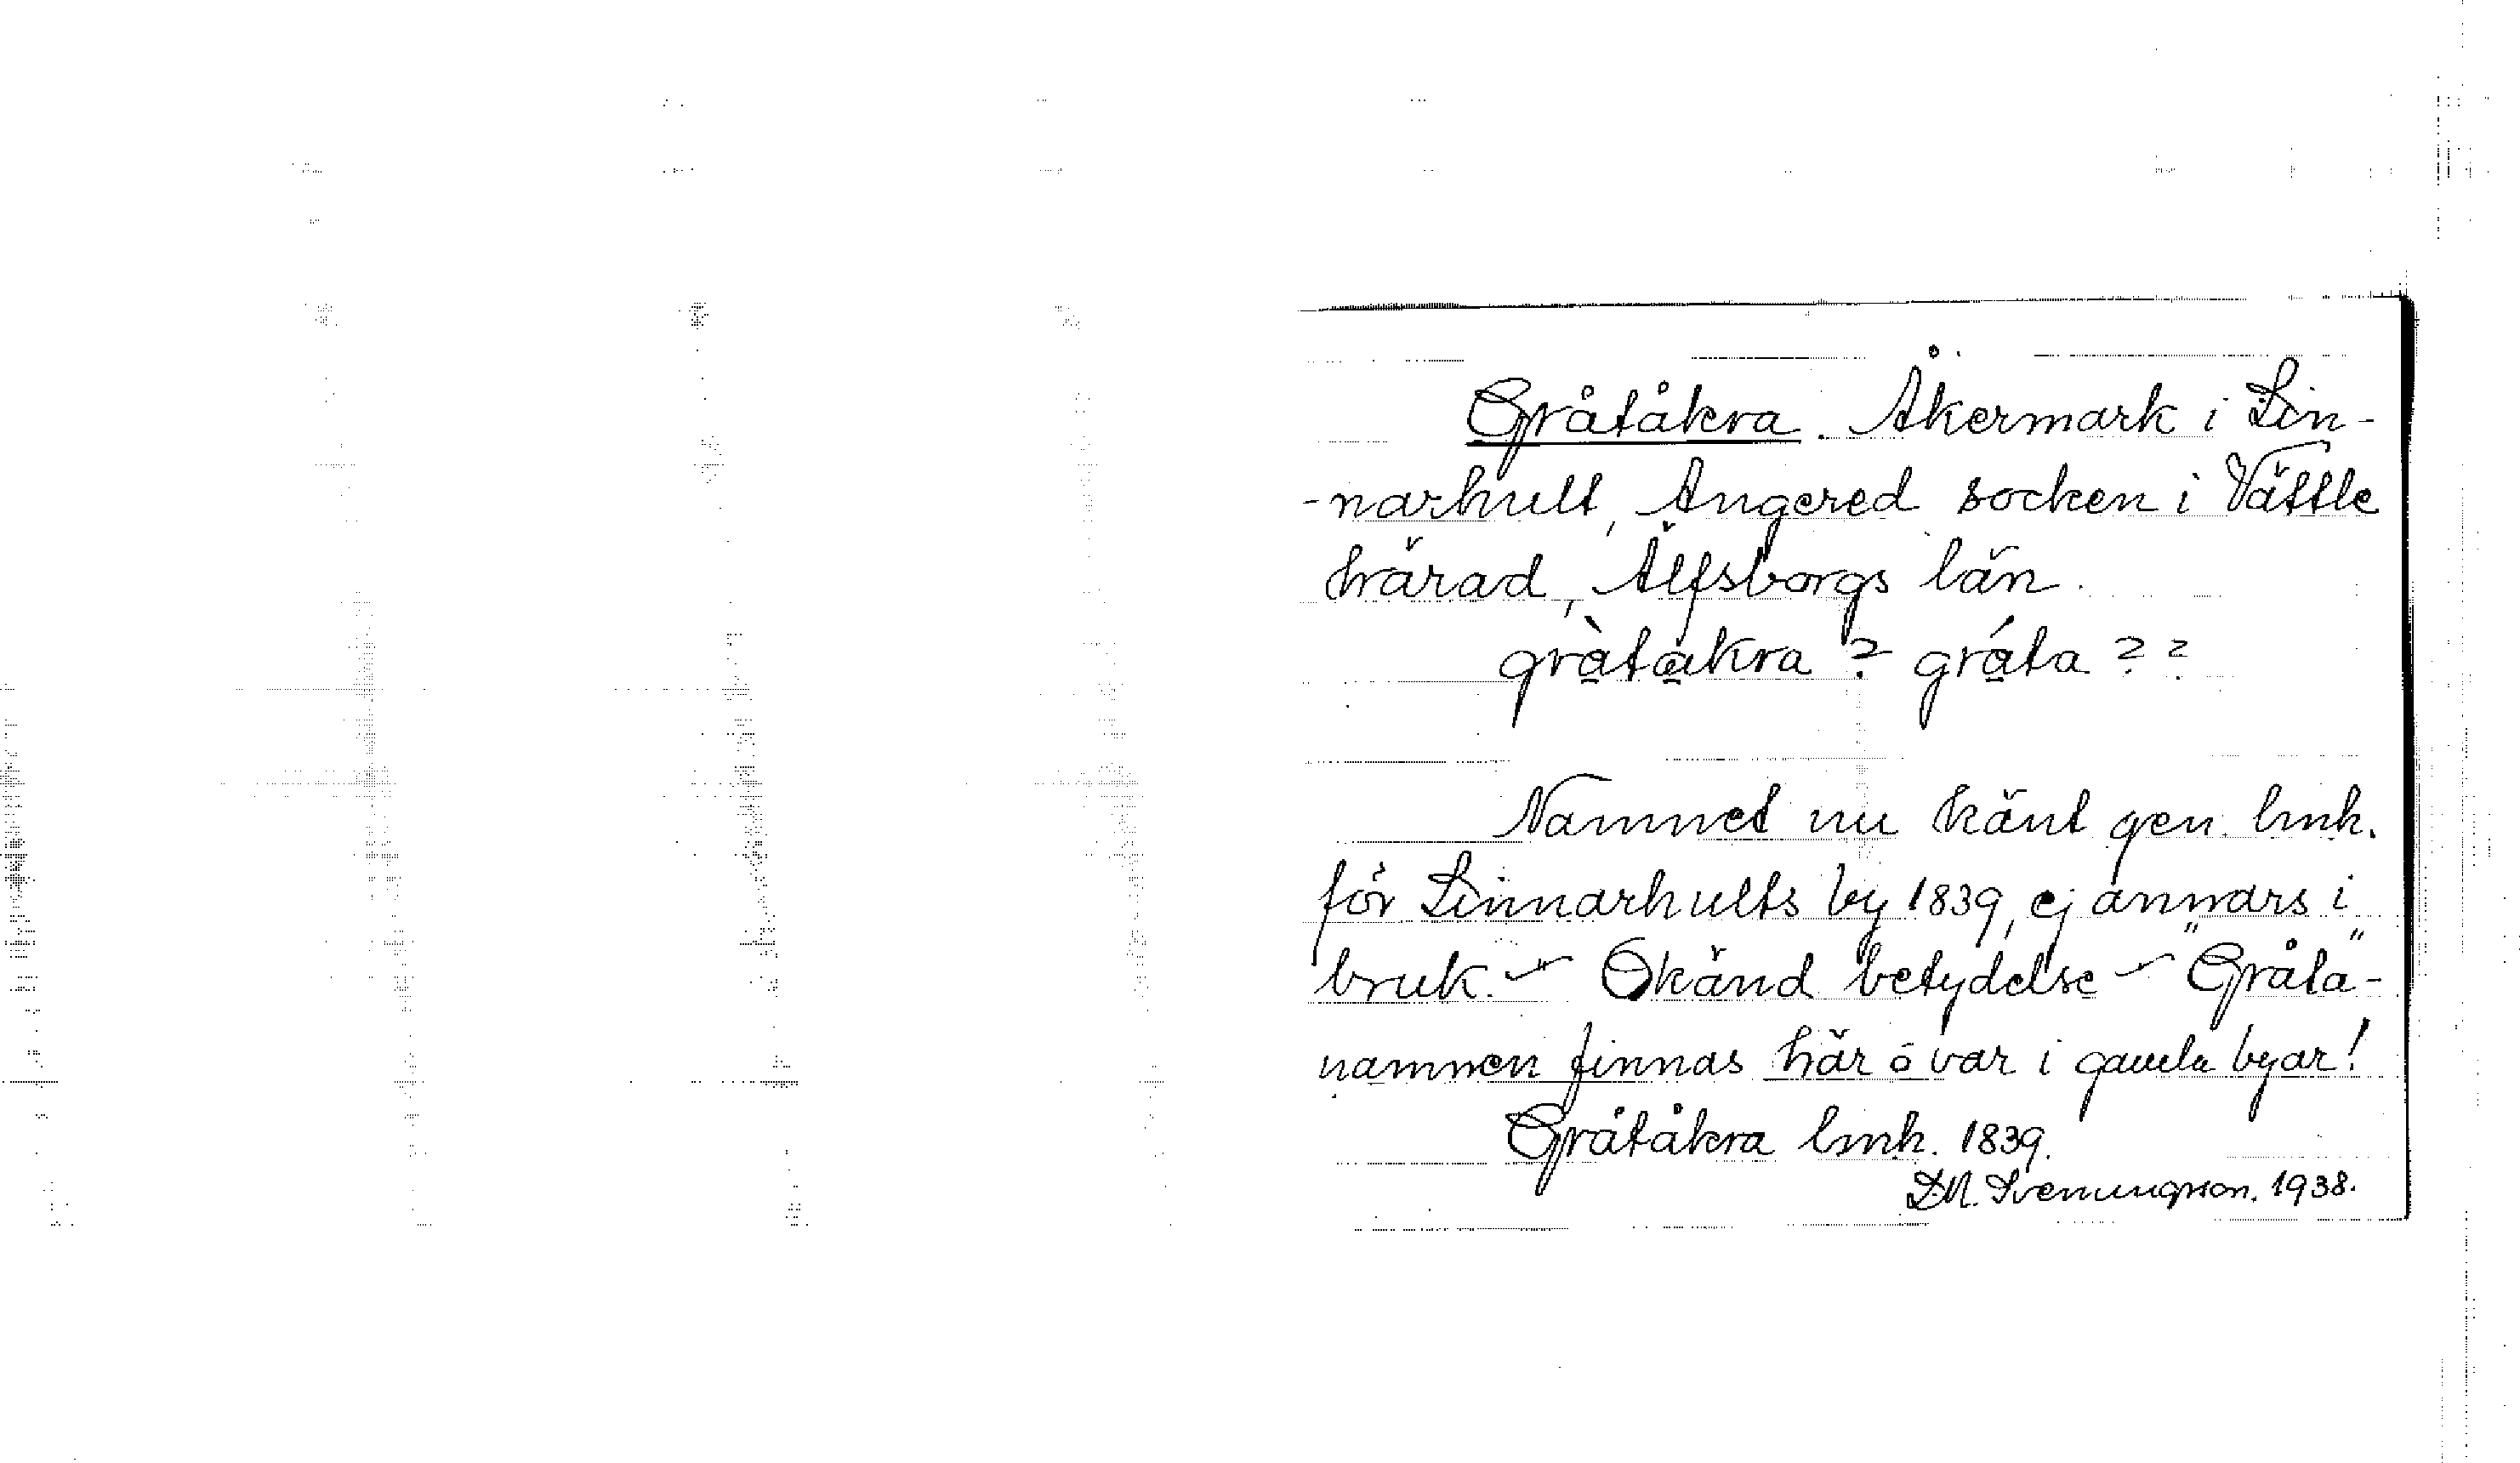 Gråtåkra. Åkermark i Lin-
-narhult, Angered socken i Vättle
härad, Älfsborgs län.
gràtåkra ? gráta ??
Namnet nu känt gen. lmk.
för Linnarhults by 1839, ej annars i
bruk. - Okänd betydelse - "Gråta"-
namnen finnas här ó var i gamla byar!
Gråtåkra lmk. 1839.
D.M. Svenungson. 1938.